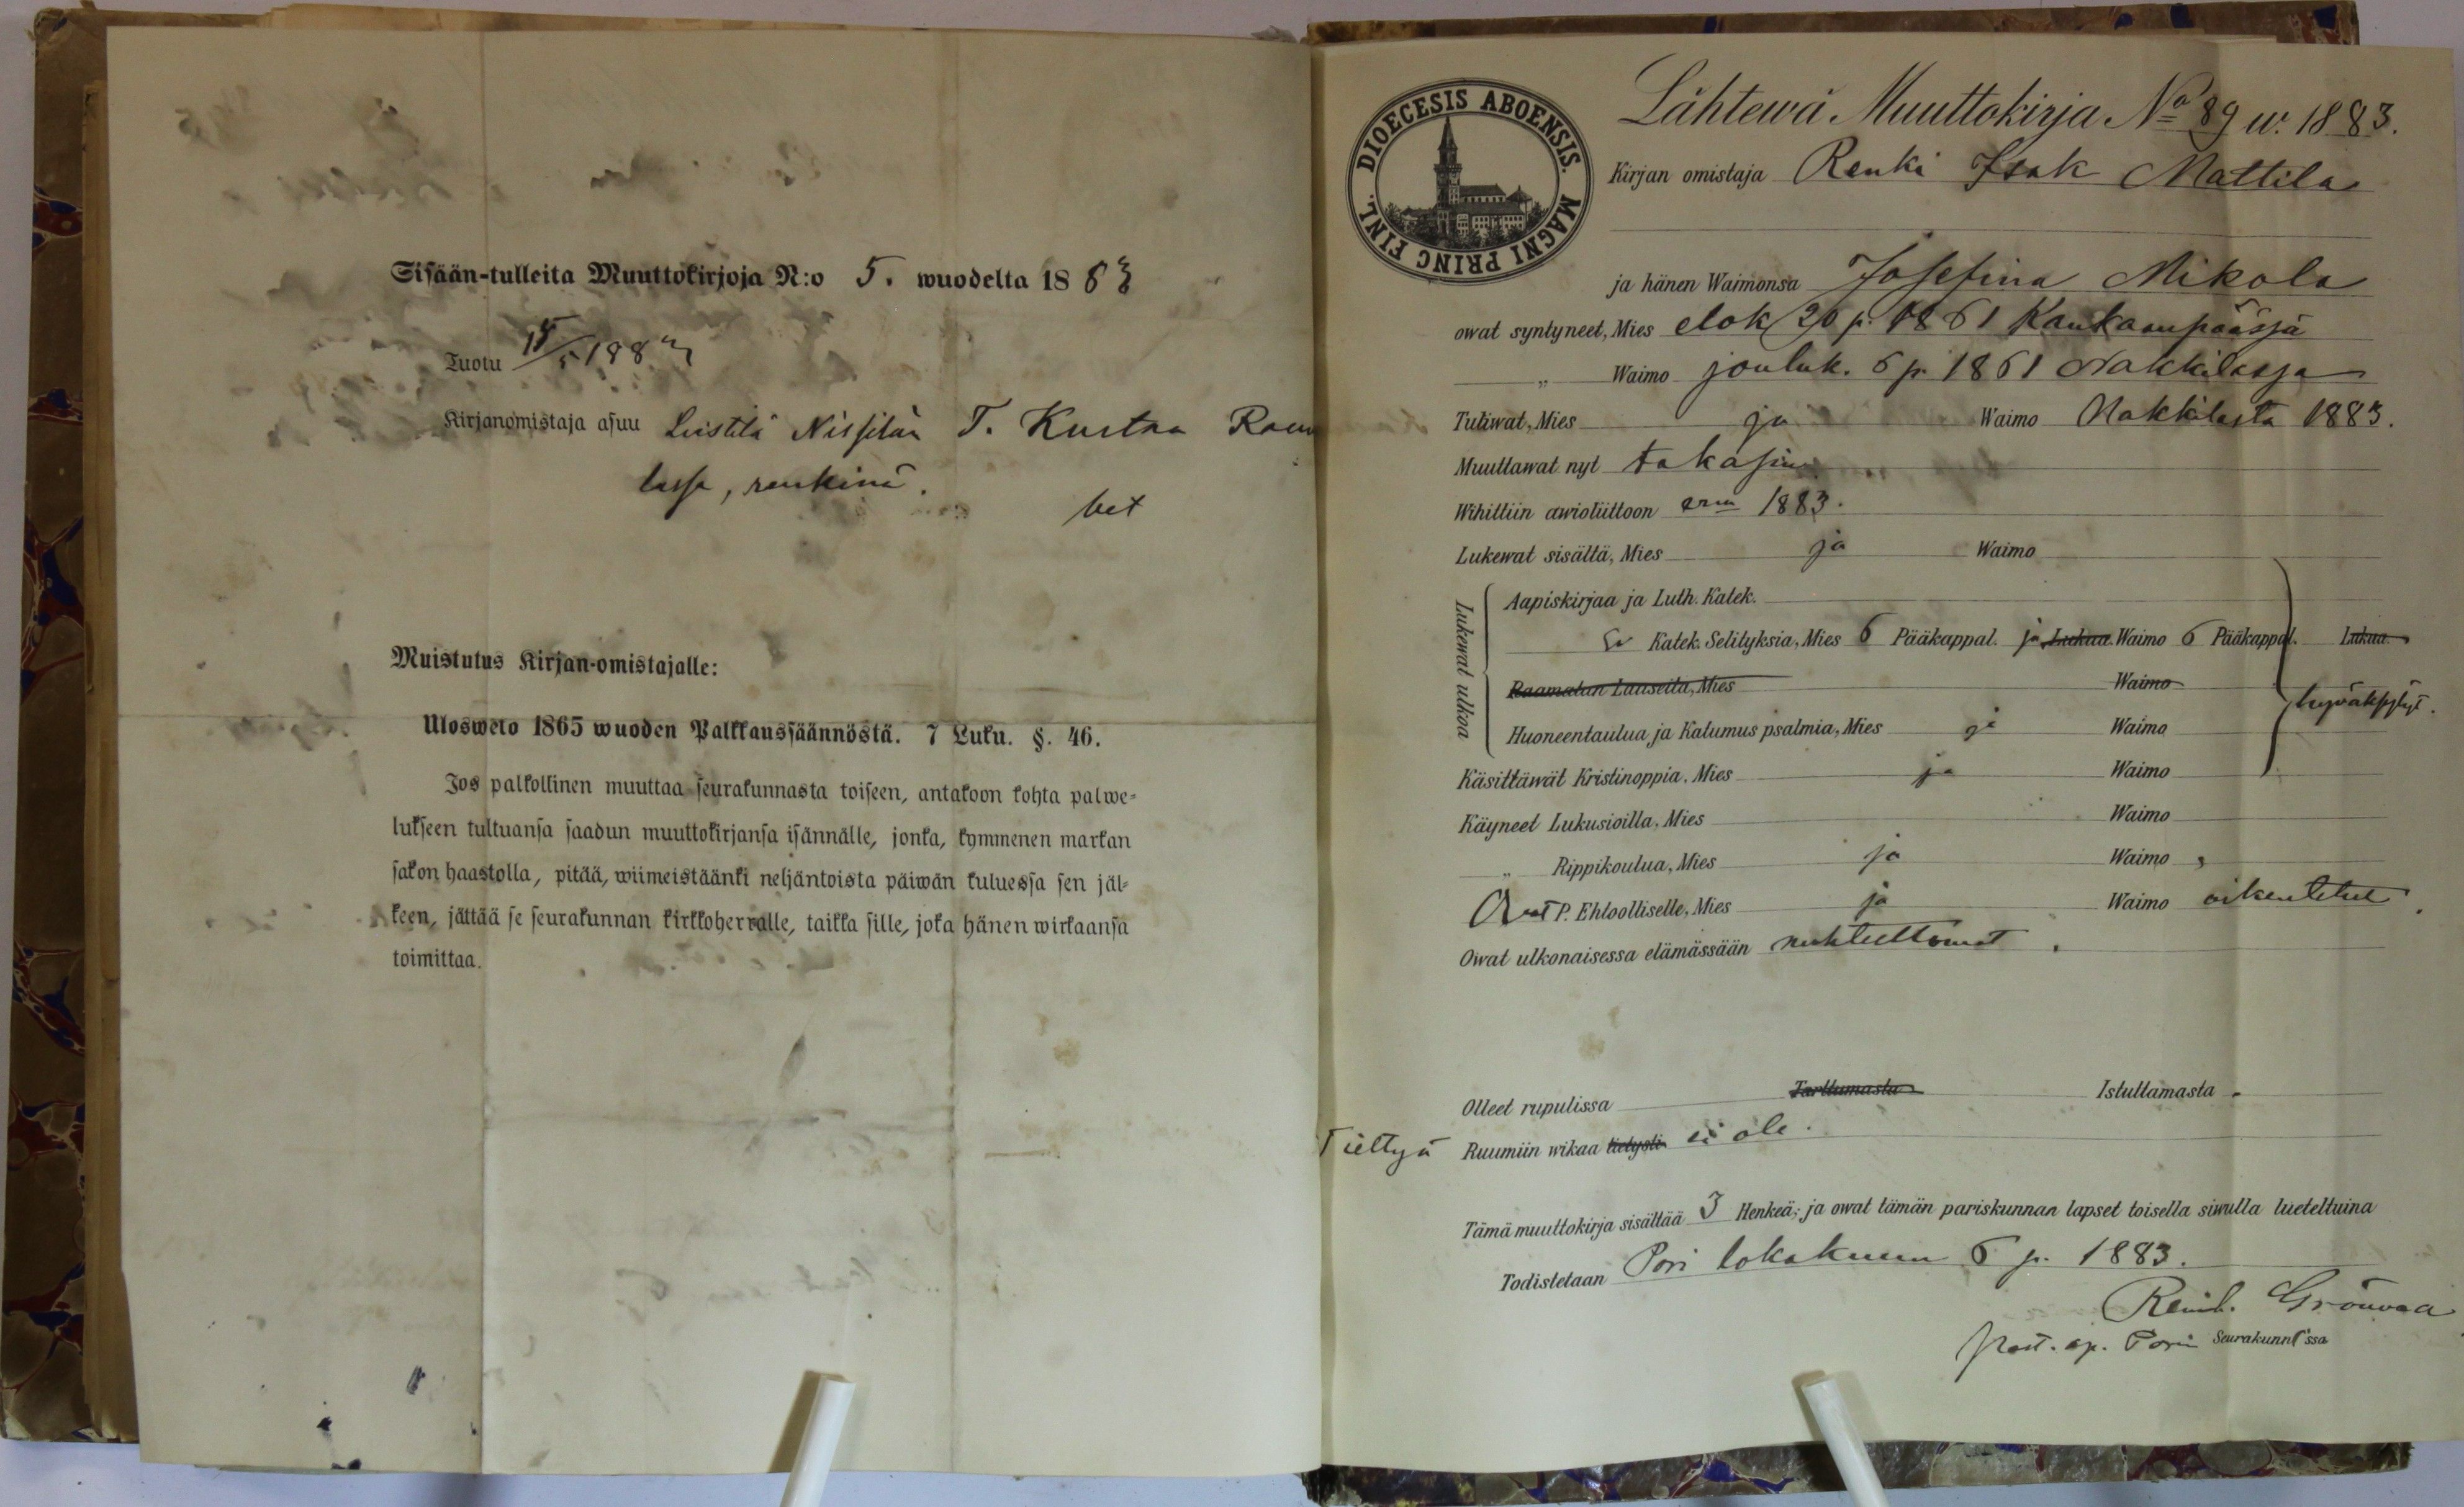 Sisään-tulleita Muuttokirjoja N:o 5. wuodelta 1883
Tuotu 15/5 1883
Kirjanomistaja asuu Leistilä Nissilän T. Kustaa
lassa, renkinä.
bet
Muistutus Kirjan-omistajalle:
Ulosweto 1865 wuoden Palkkaussäännöstä. 7 Luku. §. 46.
Jos palkollinen muuttaa seurakunnasta toiseen, antakoon kohta palwe-
lukseen tultuansa saadun muuttokirjansa isännälle, jonka, kymmenen markan
sakon haastolla, pitää, wiimeistäänki neljäntoista päiwän kuluessa sen jäl-
keen, jättää se seurakunnan kirkkoherralle, taikka sille, joka hänen wirkaansa
toimittaa.
DIOECESIS ABOENSIS. MAGNI PRINC FINL.
Lähtewä Muuttokirja No 89 w. 1883.
Kirjan omistaja Renki Isak Mattila
ja hänen Waimonsa Josefina Mikola
owat syntyneet, Mies elok 20 p. 1861 Kankaanpäässä
„ Waimo jouluk. 6 p. 1861 Nakkilassa
Tuliwat, Mies ja Waimo Nakkilasta 1883.
Muuttawat nyt takasin
Wihittiin awioliittoon 1883.
Lukewat sisältä, Mies ja Waimo
Lukewat ulkoa
Aapiskirjaa ja Luth. Katek.
Katek. Selityksiä, Mies 6 Pääkappal. ja Lukua. Waimo 6 Pääkappal. Lukua.
Raamatun Lauseita, Mies Waimo
hyväksytyt.
Huoneentaulua ja Katumus psalmia, Mies ja Waimo
Käsittäwät Kristinoppia, Mies ja Waimo
Käyneet Lukusioilla, Mies Waimo
„ Rippikoulua, Mies ja Waimo
Owat P. Ehtoolliselle, Mies ja Waimo oikeutetut.
Owat ulkonaisessa elämässään nuhteettomat.
Olleet rupulissa Tarttumasta Istuttamasta
Tiettyä Ruumiin wikaa tietysti ei ole.
Tämä muuttokirja sisältää 3 Henkeä; ja owat tämän pariskunnan lapset toisella siwulla lueteltuina
Todistetaan Pori lokakuun 6 p. 1883.
Reinh. Grönvall
Past. ap. Porin Seurakunnassa